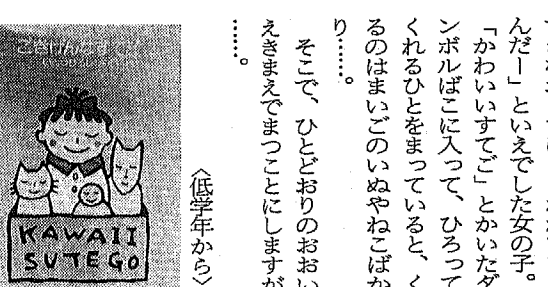 んだー」といえでした女の子。
「かわいいすてご」とかいたダ
ンボルばこに入って、ひろって
くれるひとをまっていると、く
るのはまいごのいぬやねこばか
り……。
そこで、ひとどおりのおおい
えきまえでまつことにしますが
……。
〈低学年から〉
KAWAII
SUTEGO